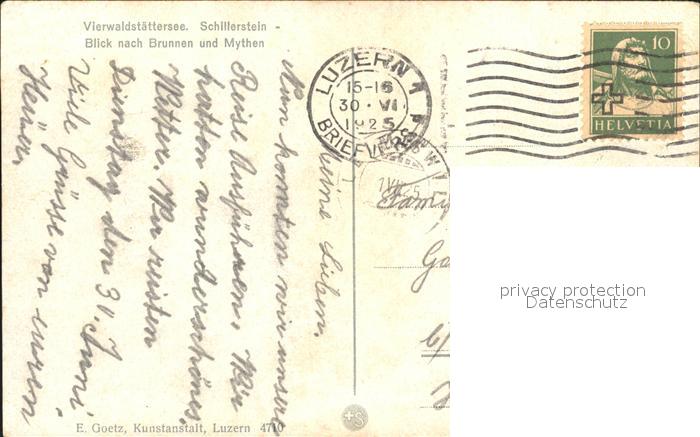 Vierwaldstättersee. Schillerstein -
Blick nach Brunnen und Mythen
LUZERN 1
15-16
30. VI
1925
BRIEFVERS
10
HELVETIA
Meine Lieben.
Nun konnten wir unsere
Reise Ausführen. Wir
hatten wunderschönes
Wetter. Wir reisten
Dienstag den 30. Juni
Viele Grüsse von euren
Famil
privacy protection
Datenschutz
E. Goetz, Kunstanstalt, Luzern 4710